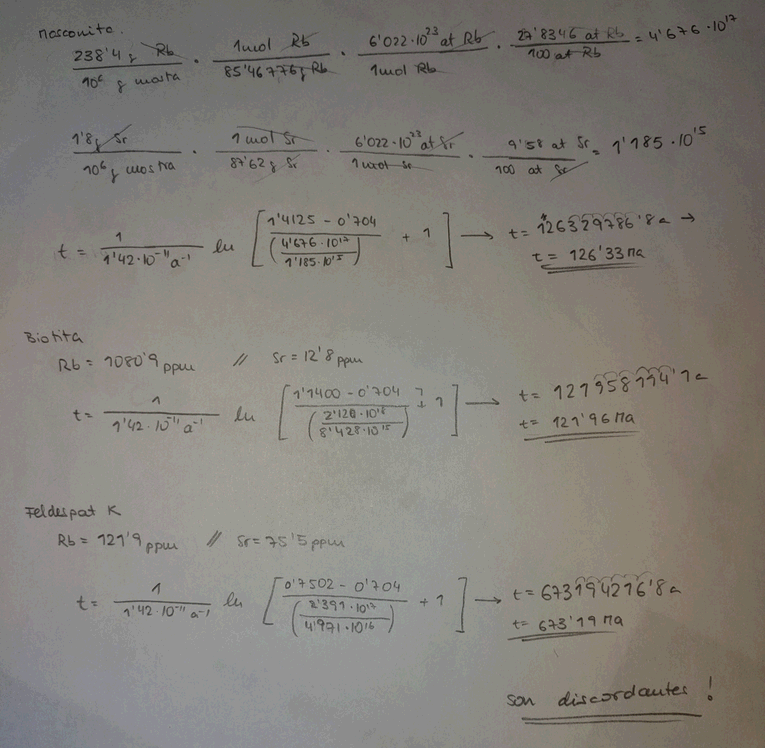 Mosconita.
238'4 g Rb / 10⁶ g mostra · 1 mol Rb / 85'46776 g Rb · 6'022·10²³ at Rb / 1 mol Rb · 27'8346 at Rb / 100 at Rb = 4'676·10¹⁷
1'8 g Sr / 10⁶ g mostra · 1 mol Sr / 87'62 g Sr · 6'022·10²³ at Sr / 1 mol Sr · 9'58 at Sr / 100 at Sr = 1'185·10¹⁵
t = 1 / 1'42·10⁻¹¹ a⁻¹ ln [ 1'4125 - 0'704 / (4'676·10¹⁷ / 1'185·10¹⁵) + 1 ] → t = 126329786'8 a →
t = 126'33 Ma
Biotita
Rb = 1080'9 ppm // Sr = 12'8 ppm
t = 1 / 1'42·10⁻¹¹ a⁻¹ ln [ 1'1400 - 0'704 / (2'120·10¹⁸ / 8'428·10¹⁵) + 1 ] → t = 121958114'1 a
t = 121'96 Ma
Feldespat K
Rb = 121'9 ppm // Sr = 75'5 ppm
t = 1 / 1'42·10⁻¹¹ a⁻¹ ln [ 0'7502 - 0'704 / (2'391·10¹⁷ / 4'971·10¹⁶) + 1 ] → t = 673194216'8 a
t = 673'19 Ma
son discordantes !